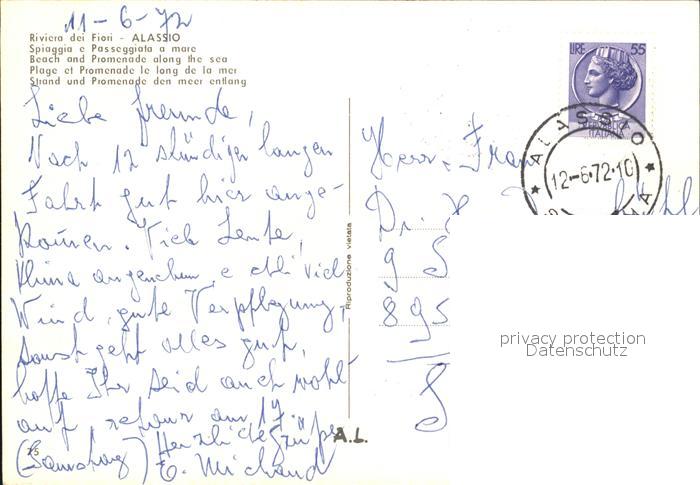 11-6-72
Riviera dei Fiori - ALASSIO
Spiaggia e Passeggiata a mare
Beach and Promenade along the sea
Plage et Promenade le long de la mer
Strand und Promenade den meer entlang
Liebe freunde,
Nach 12 stündiger langen
Fahrt gut hier ange-
komen. Viele Leute,
Klima angenehm, e viel
Wind, gute Verpflegung,
sonst geht alles gut,
hoffe Ihr seid auch wohl
auf retour am 17.
(Samstag) Herzliche Grüße
E. Michaud
75
A.L.
Riproduzione vietata
Herr. Fran
Dr.
9 S
895
LIRE 55
ITALIANA
ALASSIO
12-6-72-10
privacy protection
Datenschutz